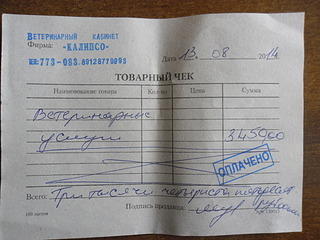 ВЕТЕРИНАРНЫЙ КАБИНЕТ
Фирма: «КАЛИПСО»
ТЕЛ: 773-083. 89128770093
Дата 13. 08 2014
ТОВАРНЫЙ ЧЕК
Наименование товара Кол-во Цена Сумма
Ветеринарные
услуги 345000
ОПЛАЧЕНО
Всего: Три тысячи четыреста пятьдесят
Подпись продавца
100 листов